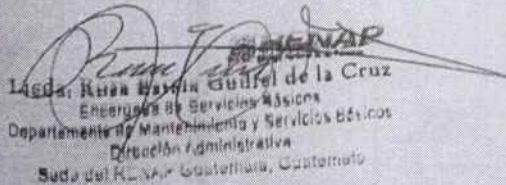 RENAP
Licda. Gudiel de la Cruz
Encargada de Servicios Básicos
Departamento de Mantenimiento y Servicios Básicos
Dirección Administrativa
Sede del RENAP Guatemala, Guatemala